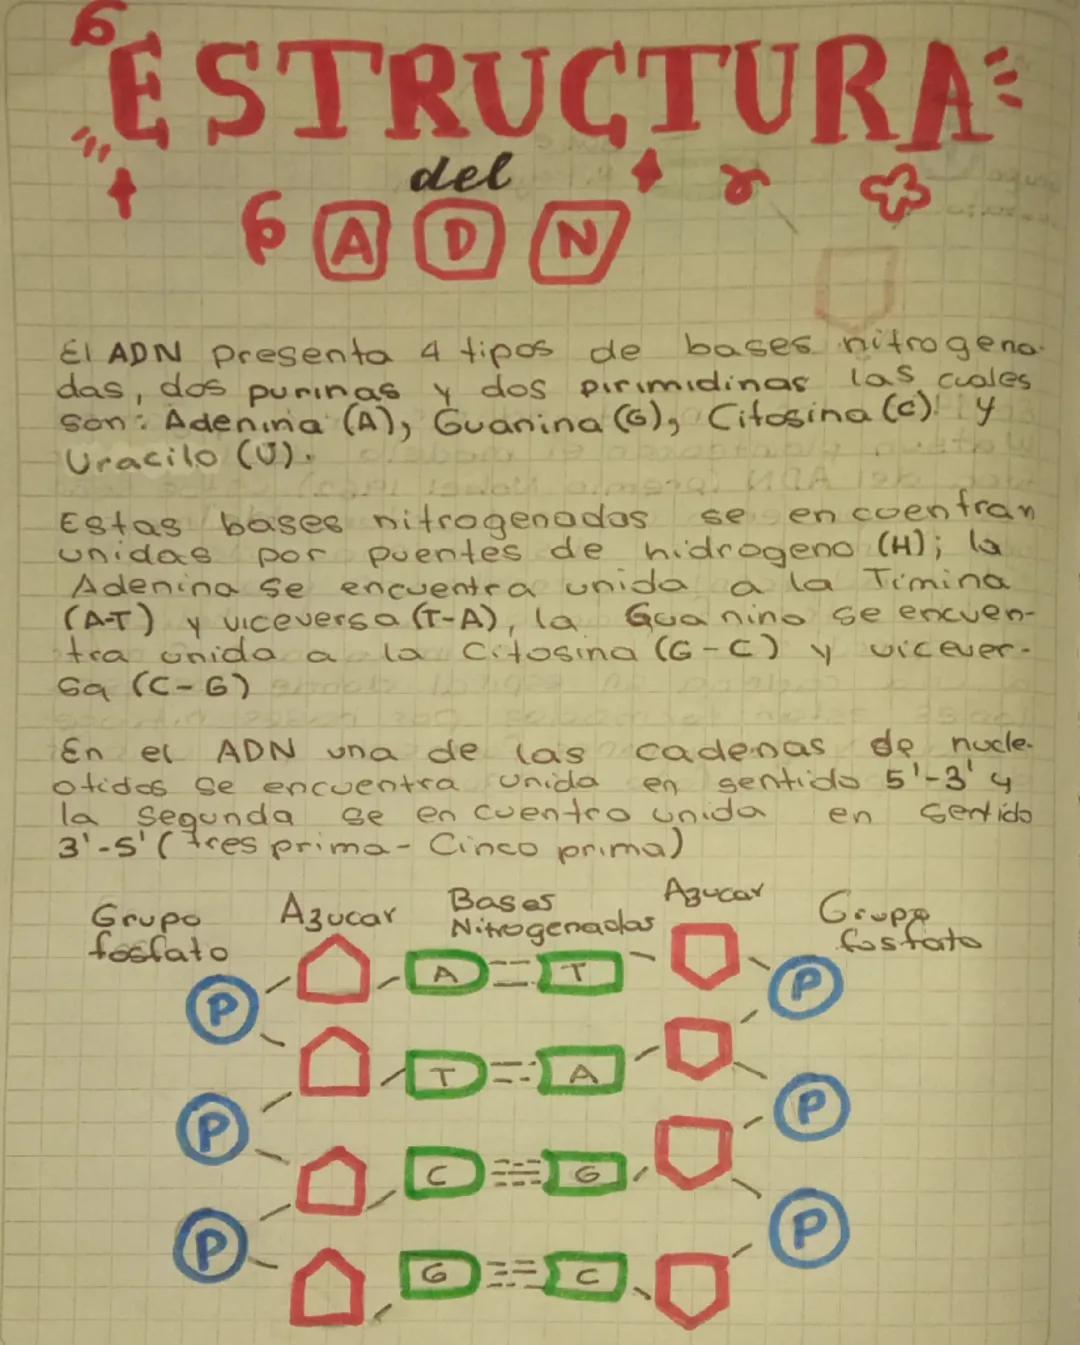 ESTRUCTURA
del
ADN
El ADN presenta 4 tipos de bases nitrogena-
das, dos purinas y dos pirimidinas las cuales
son: Adenina (A), Guanina (G), Citosina (C) y
Uracilo (U).
Estas bases nitrogenadas se encuentran
unidas por puentes de hidrogeno (H); la
Adenina se encuentra unida a la Timina
(A-T) y viceversa (T-A), la Guanina se encuen-
tra unida a la Citosina (G-C) y vicever-
sa (C-G)
En el ADN una de las cadenas de nucle-
otidos se encuentra unida en sentido 5'-3' y
la segunda se encuentra unida en sentido
3'-5' (tres prima - Cinco prima)
Grupo fosfato
Azucar
Bases Nitrogenadas
Azucar
Grupo fosfato
P A T P
T A
P C G P
P G C P